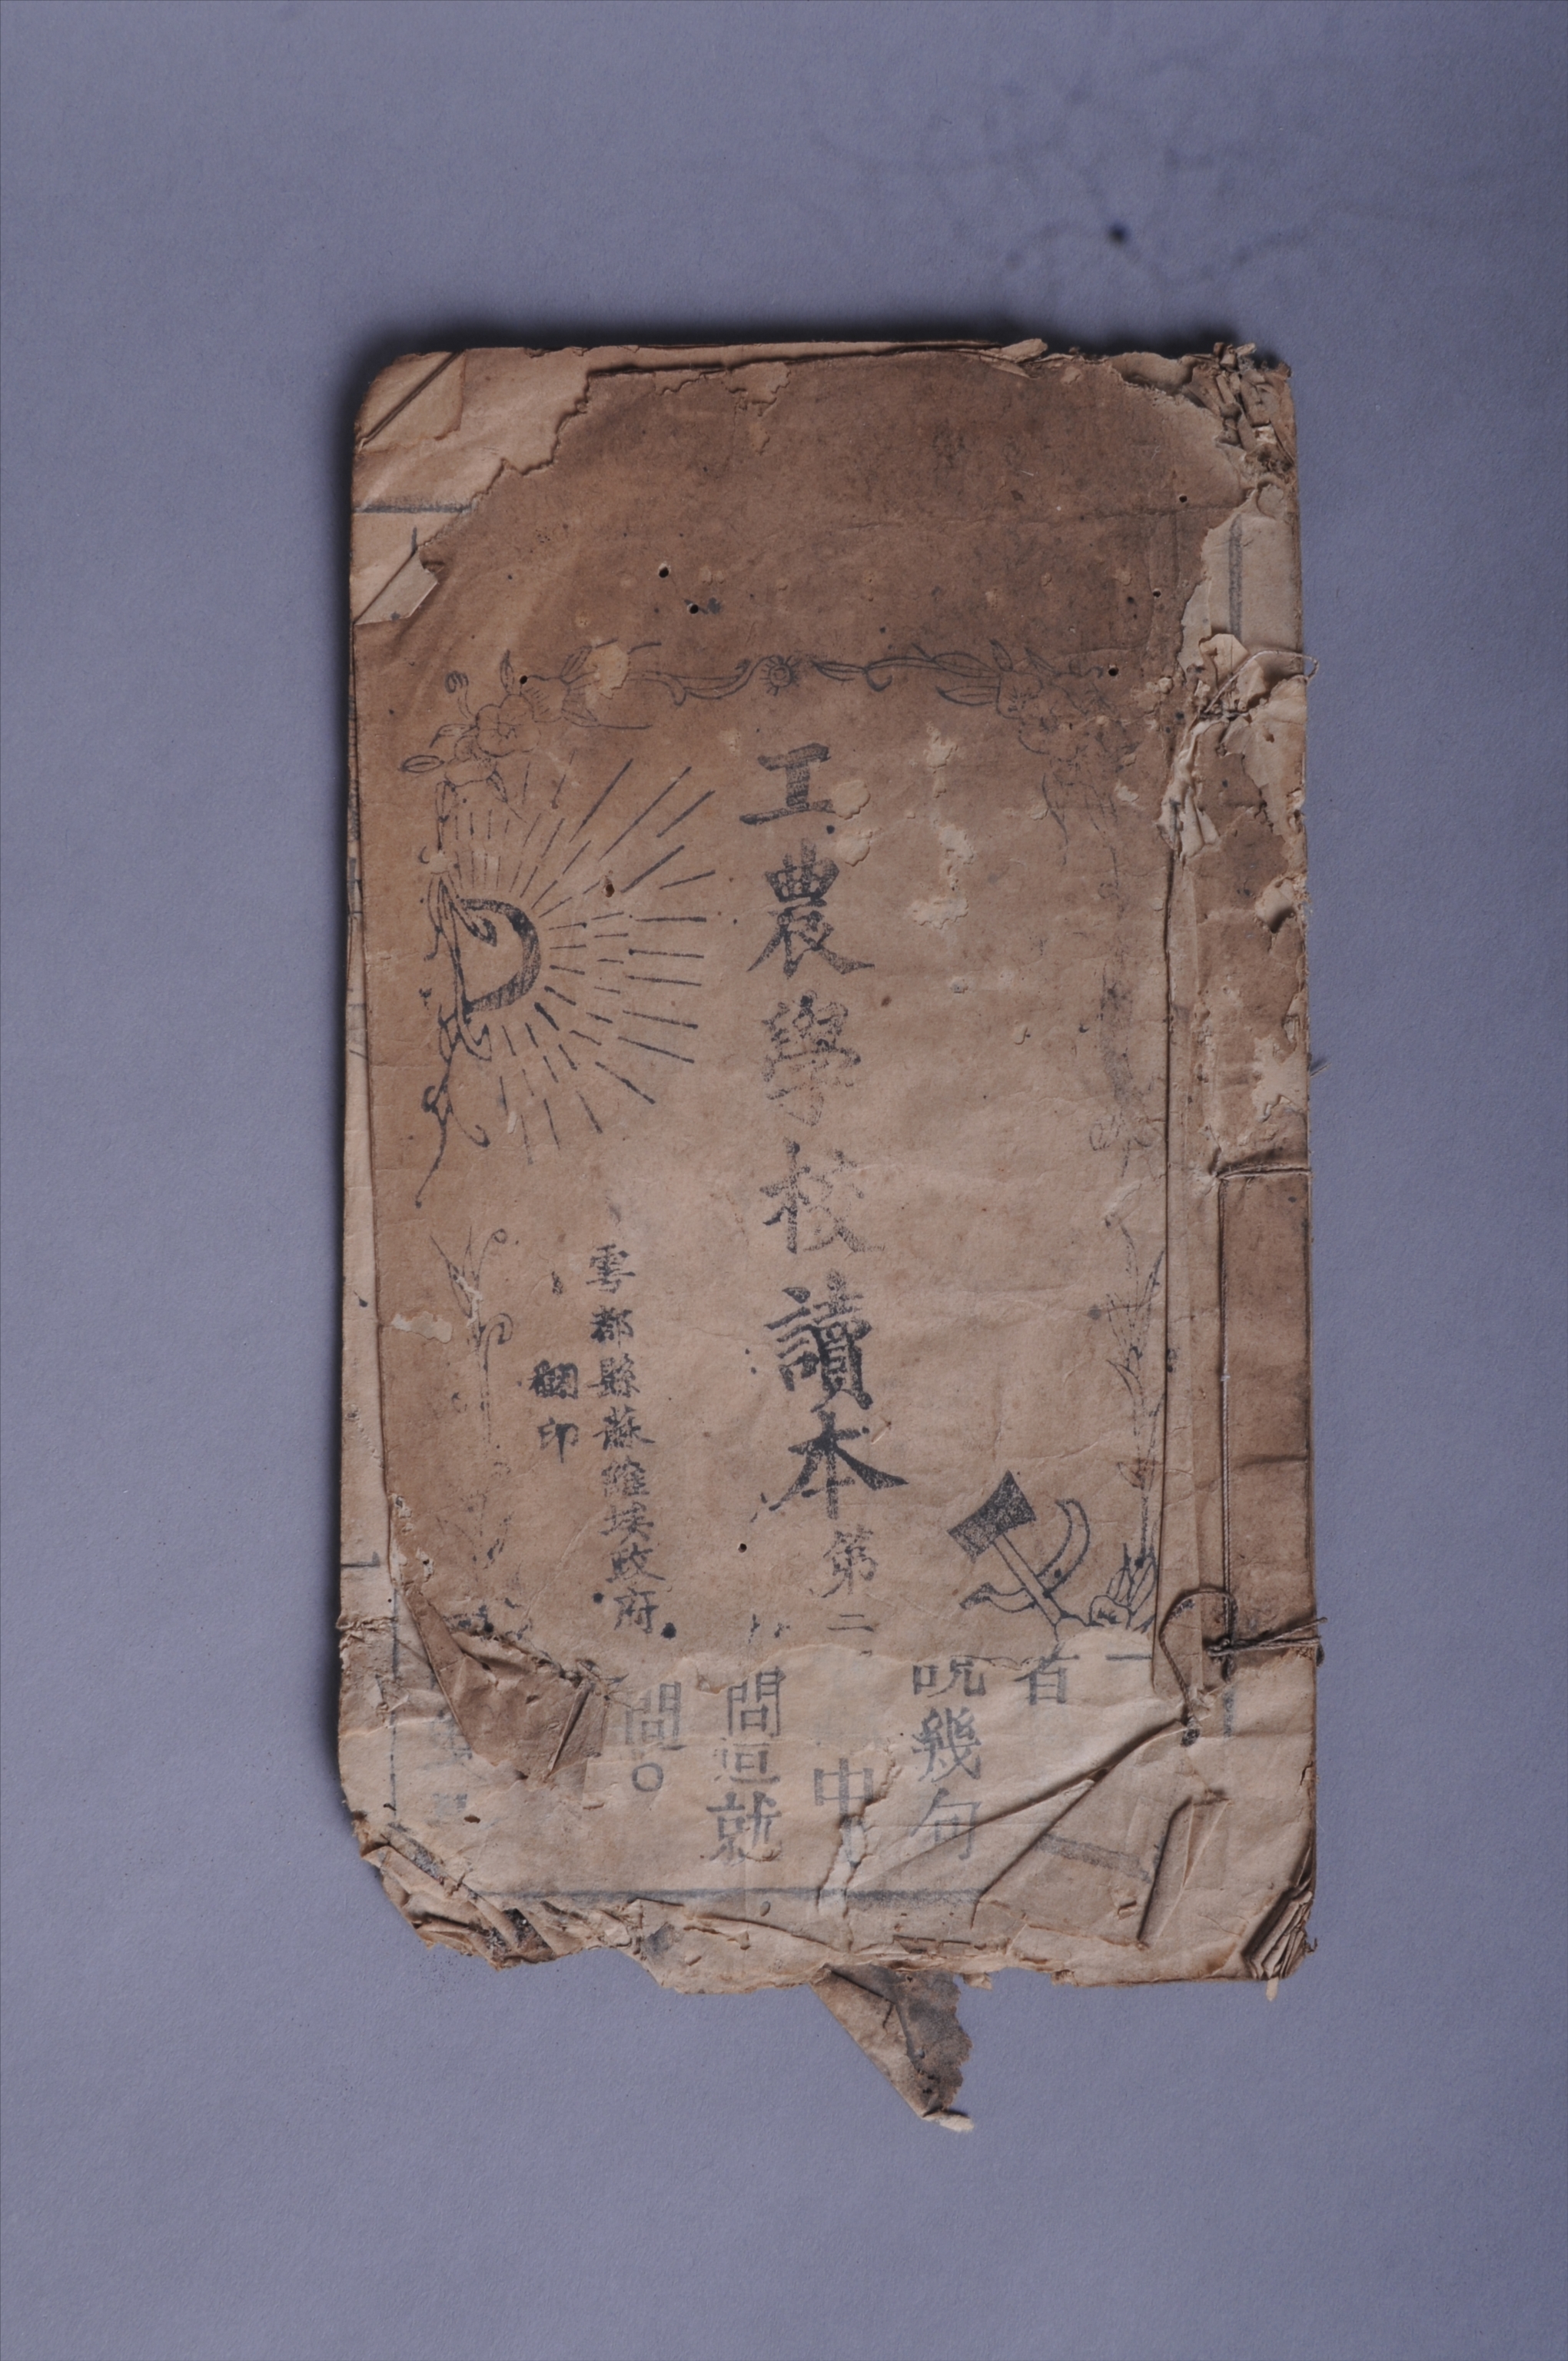 工農學校讀本第二
雩都縣蘇維埃政府
翻印
百
呪幾句
中
問亘就
問○